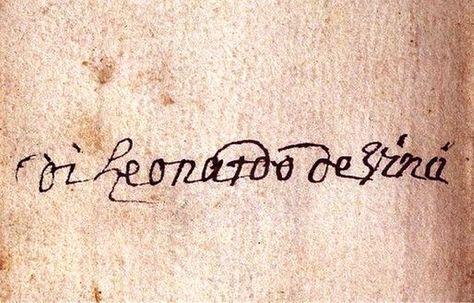 Di Leonardo de Vinci